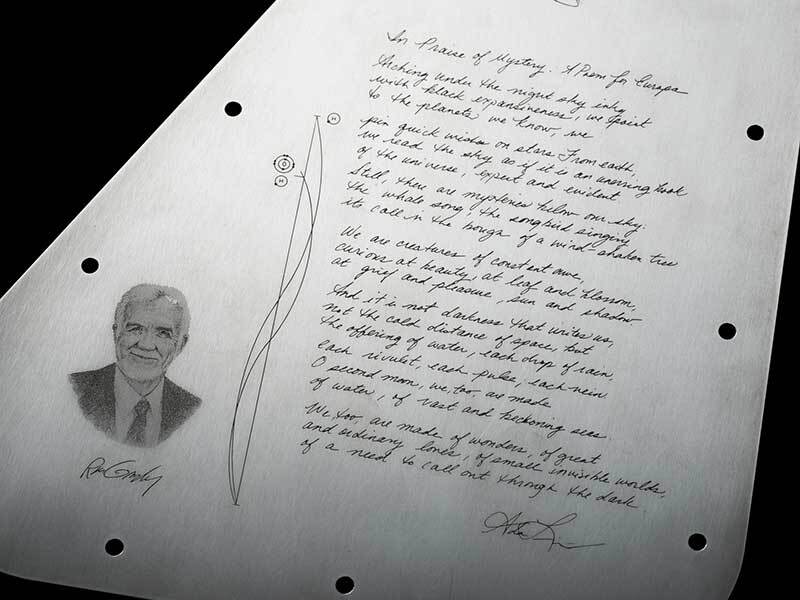 In Praise of Mystery: A Poem for Europa
Arching under the night sky inky
with black expansiveness, we point
to the planets we know, we
pin quick wishes on stars. From earth,
we read the sky as if it is an unerring book
of the universe, expert and evident.
Still, there are mysteries below our sky:
the whale song, the songbird singing
its call in the bough of a wind-shaken tree.
We are creatures of constant awe,
curious at beauty, at leaf and blossom,
at grief and pleasure, sun and shadow.
And it is not darkness that unites us,
not the cold distance of space, but
the offering of water, each drop of rain,
each rivulet, each pulse, each vein.
O second moon, we, too, are made
of water, of vast and beckoning seas.
We, too, are made of wonders, of great
and ordinary loves, of small invisible worlds,
of a need to call out through the dark.
H
O
H
Ron Greeley
Ada Limón